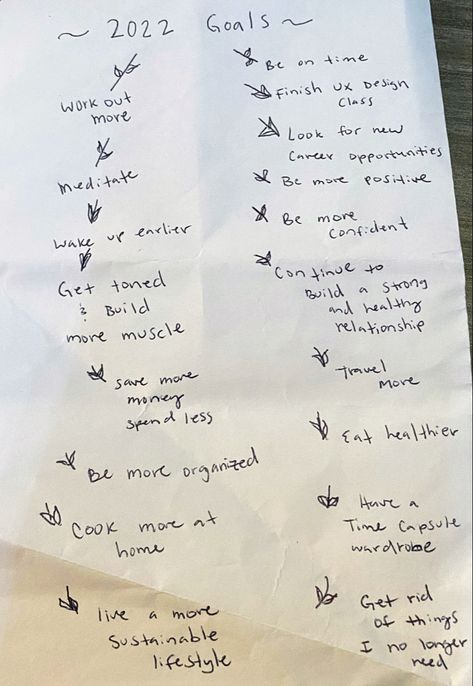 ~ 2022 Goals ~
Work out
more
Meditate
Wake up earlier
Get toned
& Build
more muscle
Save more
money
spend less
Be more organized
Cook more at
home
live a more
sustainable
lifestyle
Be on time
Finish UX Design
Class
Look for new
Career opportunities
Be more positive
Be more
Confident
Continue to
Build a strong
and healthy
relationship
Travel
More
Eat healthier
Have a
Time Capsule
wardrobe
Get rid
of things
I no longer
need